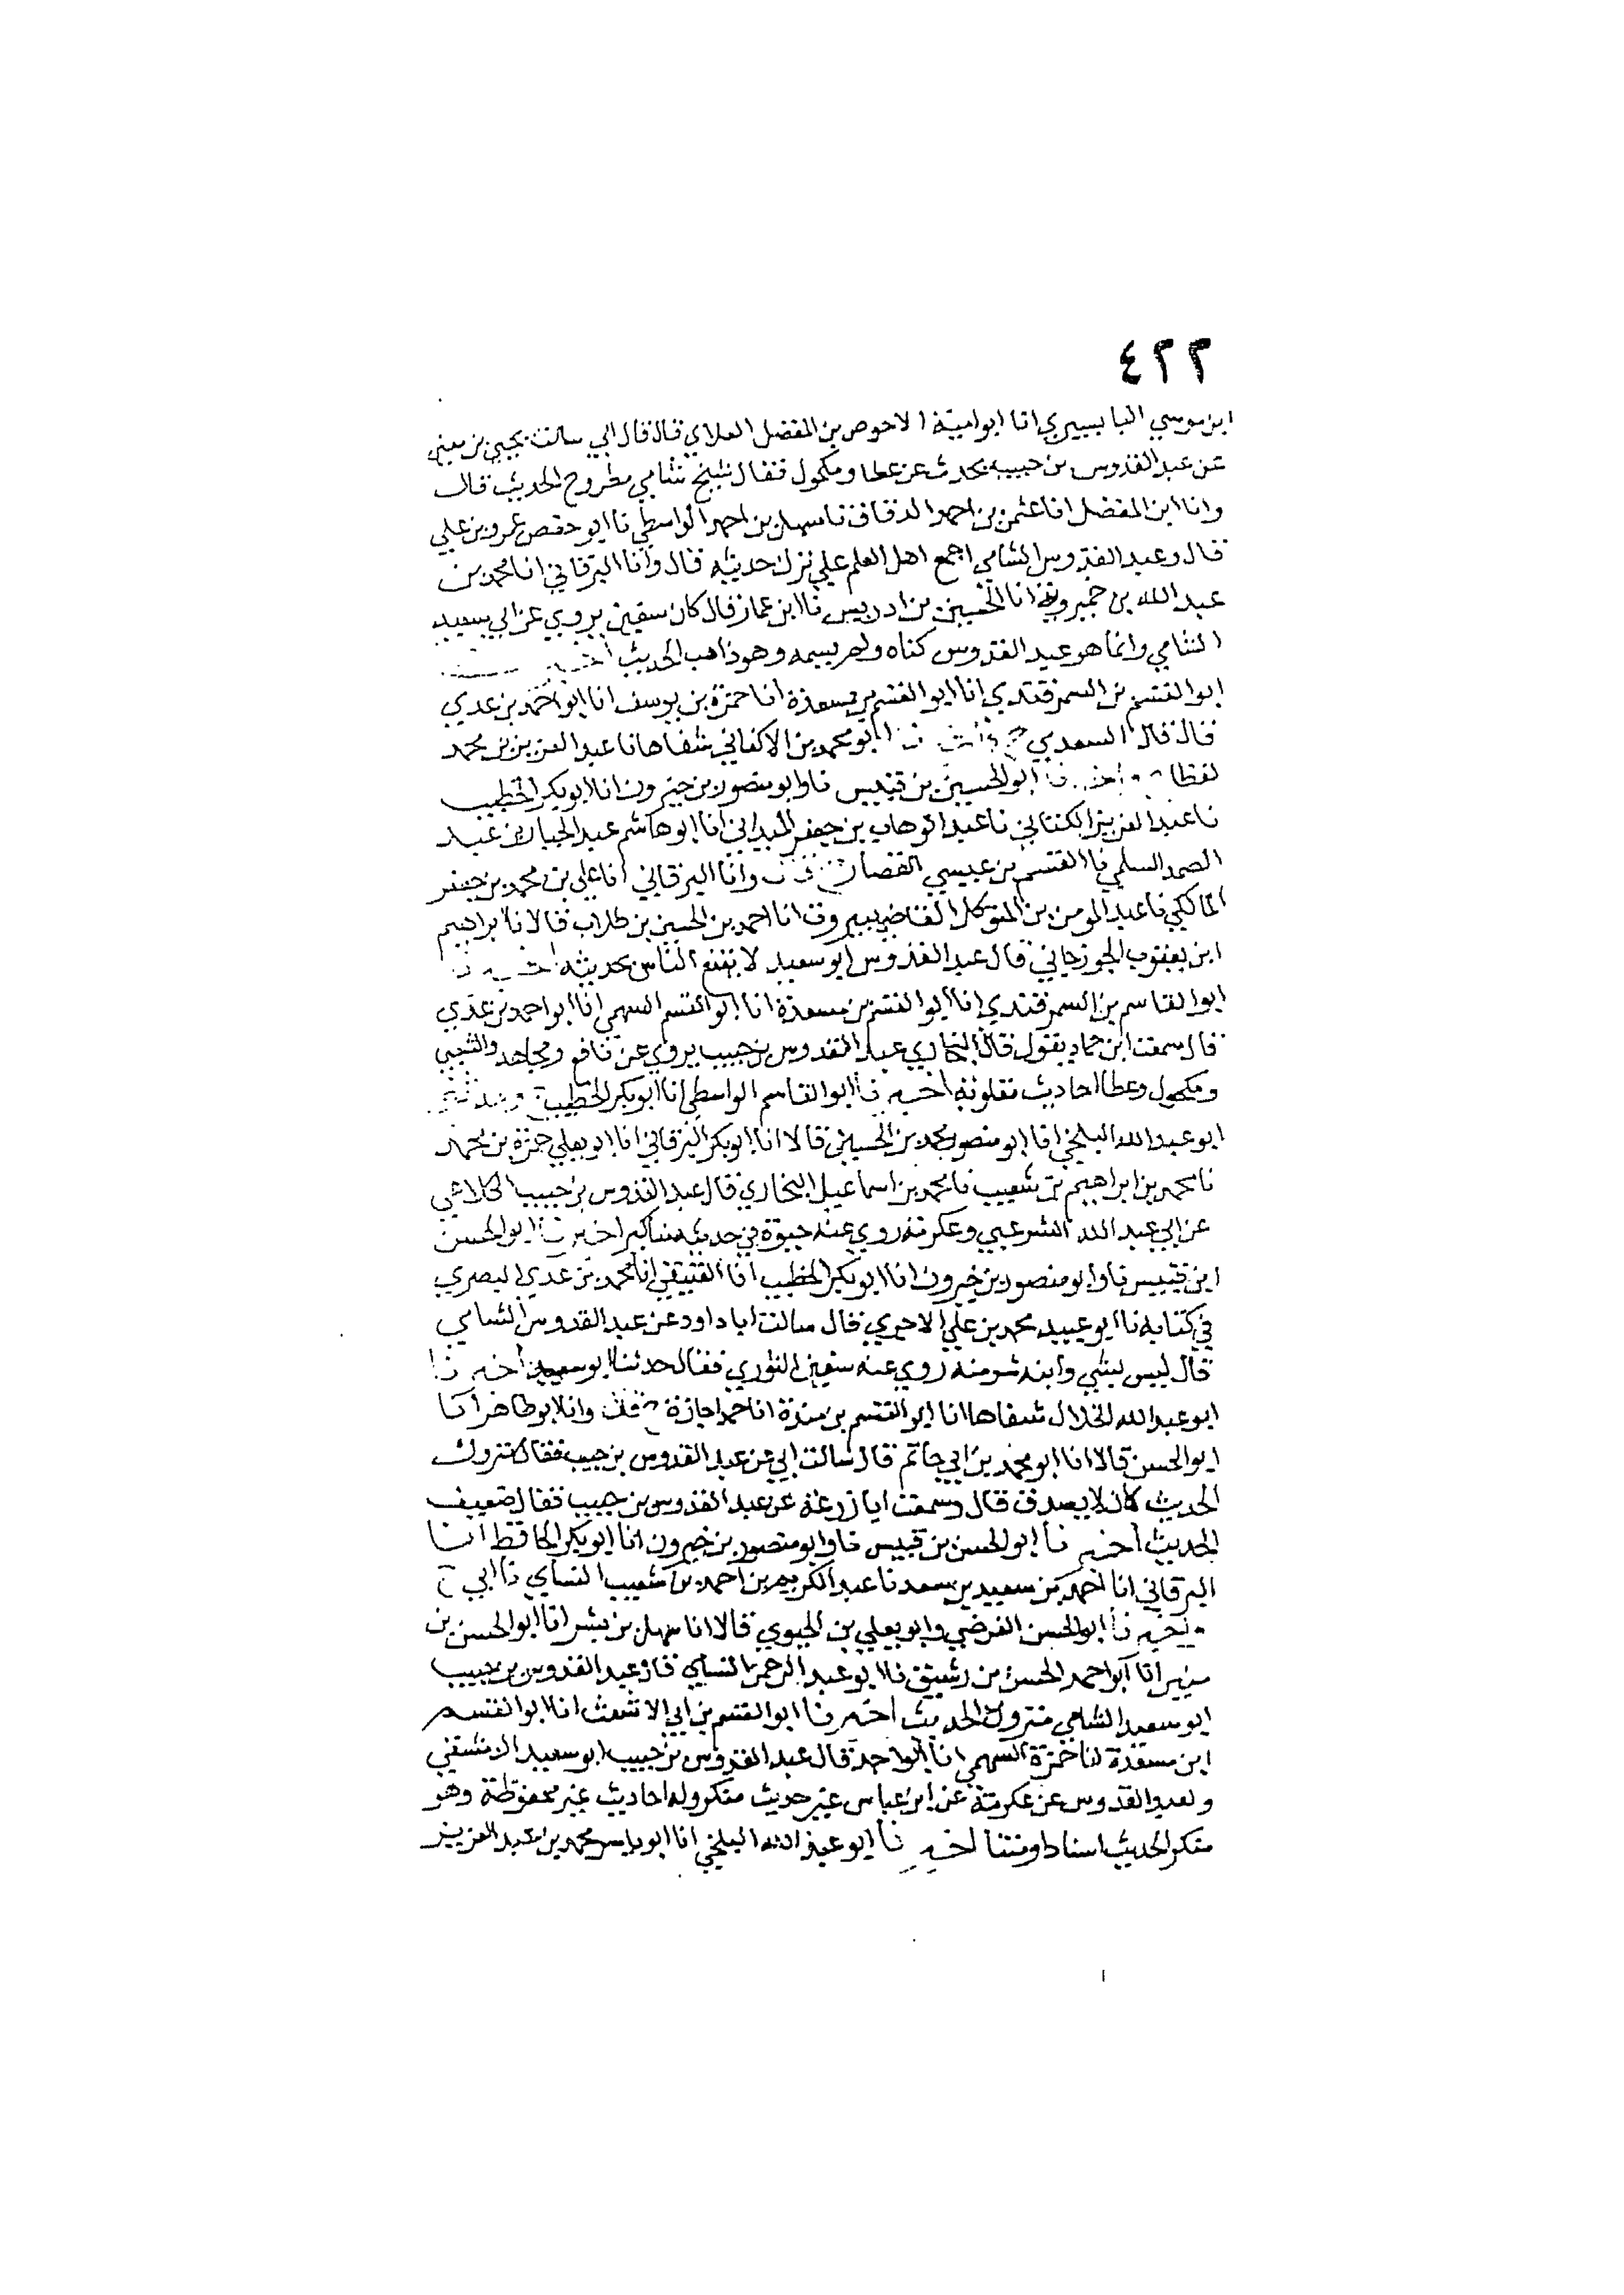 ٤٢٢
ابن موسي البابسيري انا ابوامية الاحوص بن المفضل الغلابي قال قال ابي سالت يحيي بن معين
عن عبد القدوس بن حبيب يحدث عن عطا ومكحول فقال شيخ شامي مطروح الحديث قال
وانا ابن الفضل انا عثمن بن احمد الدقاق نا سهل بن احمد الواسطي نا ابو حفص عمرو بن علي
قال وعبد القدوس الشامي اجمع اهل العلم علي ترك حديثه قال وانا البرقاني انا محمد بن
عبد الله بن خميرويه انا الحسين بن ادريس نا ابن عمار قال كان سفين يروي عن ابي سعيد
الشامي وانما هو عبد القدوس كناه ولم يسمه وهو ذاهب الحديث
ابو القسم بن السمرقندي انا ابو القسم بن مسعدة انا حمزة بن يوسف انا ابو احمد بن عدي
قال قال السعدي ح ابو محمد بن الاكفاني شفاها نا عبد العزيز بن محمد
لفظا ابو الحسين بن قبيس نا وابو منصور بن خيرون انا ابو بكر الخطيب
نا عبد العزيز الكتاني نا عبد الوهاب بن جعفر الميداني انا ابو هاشم عبد الجبار بن عبد
الصمد السلمي نا القسم بن عيسي القصار وانا البرقاني انا علي بن محمد بن جعفر
المالكي نا عبد المومن بن المتوكل القاضي ببيروت انا احمد بن الحسين بن طلاب قالا نا ابراهيم
ابن يعقوب الجوزجاني قال عبد القدوس ابو سعيد لا يقنع الناس بحديثه
ابو القاسم بن السمرقندي انا ابو القسم بن مسعدة انا ابو القسم السهمي انا ابو احمد بن عدي
قال سمعت ابن حماد يقول قال البخاري عبد القدوس بن حبيب يروي عن نافع ومجاهد والشعبي
ومكحول وعطا احاديث مقلوبة اخبرنا ابو القاسم الواسطي انا ابو بكر الخطيب ح
ابو عبد الله البلخي انا ابو منصور محمد بن الحسين قالا انا ابو بكر البرقاني انا ابو يعلي حمزة بن محمد
نا محمد بن ابراهيم بن شعيب نا محمد بن اسماعيل البخاري قال عبد القدوس بن حبيب الكلاعي
عن ابي عبد الله الشرعبي وعكرمة روي عنه حيوة في حديثه مناكير اخبرنا ابو الحسن
ابن قبيس نا وابو منصور بن خيرون انا ابو بكر الخطيب انا العتيقي انا محمد بن عدي البصري
في كتابه نا ابو عبيد محمد بن علي الاجري قال سالت ابا داود عن عبد القدوس الشامي
قال ليس بشي وابنه شر منه روي عنه سفين الثوري فقال حدثنا ابو سعيد اخبرنا
ابو عبد الله الخلال شفاها انا ابو القسم بن مندة انا حمد اجازة ح قال وانا ابو طاهر انا
ابو الحسن قالا انا ابو محمد بن ابي حاتم قال سالت ابي عن عبد القدوس بن حبيب فقال متروك
الحديث كان لا يصدق قال وسمعت ابا زرعة عن عبد القدوس بن حبيب فقال ضعيف
الحديث اخبرنا ابو الحسن بن قبيس نا وابو منصور بن خيرون انا ابو بكر الحافظ انا
البرقاني انا احمد بن سعيد بن سعد نا عبد الكريم بن احمد بن شعيب النساي نا ابي ح
واخبرنا ابو الحسن الفرضي وابو يعلي بن الحبوبي قالا انا سهل بن بشر انا ابو الحسن بن
منير انا ابو احمد الحسن بن رشيق نا ابو عبد الرحمن النساي قال عبد القدوس بن حبيب
ابو سعيد الشامي متروك الحديث اخبرنا ابو القسم بن ابي الاشعث انا ابو القسم
ابن مسعدة انا حمزة السهمي انا ابو احمد قال عبد القدوس بن حبيب ابو سعيد الدمشقي
ولعبد القدوس عن عكرمة عن ابن عباس غير حديث منكر وله احاديث غير محفوظة وهو
منكر الحديث اسنادا ومتنا اخبرنا ابو عبد الله البلخي انا ابو ياسر محمد بن عبد العزيز